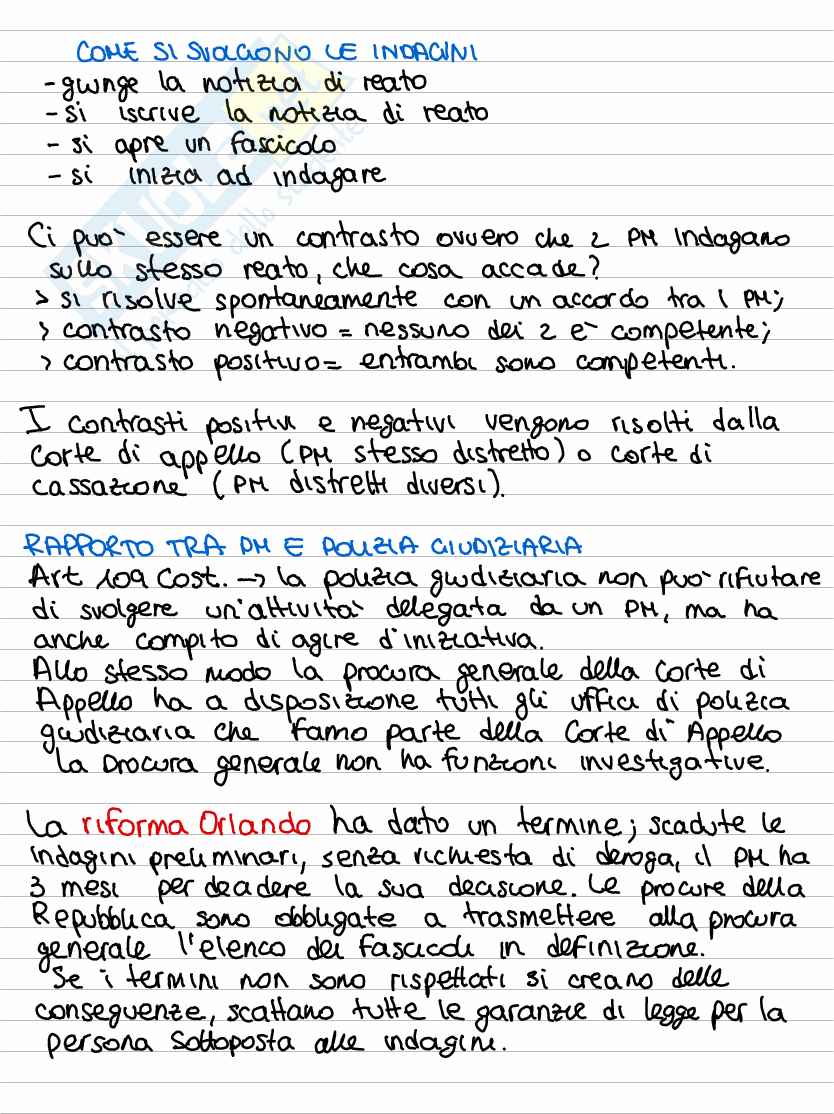 COME SI SVOLGONO LE INDAGINI
- giunge la notizia di reato
- si iscrive la notizia di reato
- si apre un fascicolo
- si inizia ad indagare
Ci può essere un contrasto ovvero che 2 PM indagano
sullo stesso reato, che cosa accade?
> si risolve spontaneamente con un accordo tra i PM;
> contrasto negativo = nessuno dei 2 è competente;
> contrasto positivo = entrambi sono competenti.
I contrasti positivi e negativi vengono risolti dalla
Corte di appello (PM stesso distretto) o corte di
cassazione (PM distretti diversi).
RAPPORTO TRA PM E POLIZIA GIUDIZIARIA
Art 109 Cost. → la polizia giudiziaria non può rifiutare
di svolgere un'attività delegata da un PM, ma ha
anche compito di agire d'iniziativa.
Allo stesso modo la procura generale della Corte di
Appello ha a disposizione tutti gli uffici di polizia
giudiziaria che fanno parte della Corte di Appello
la procura generale non ha funzioni investigative.
La riforma Orlando ha dato un termine; scadute le
indagini preliminari, senza richiesta di deroga, il PM ha
3 mesi per decidere la sua decisione. Le procure della
Repubblica sono obbligate a trasmettere alla procura
generale l'elenco dei fascicoli in definizione.
Se i termini non sono rispettati si creano delle
conseguenze, scattano tutte le garanzie di legge per la
persona sottoposta alle indagini.